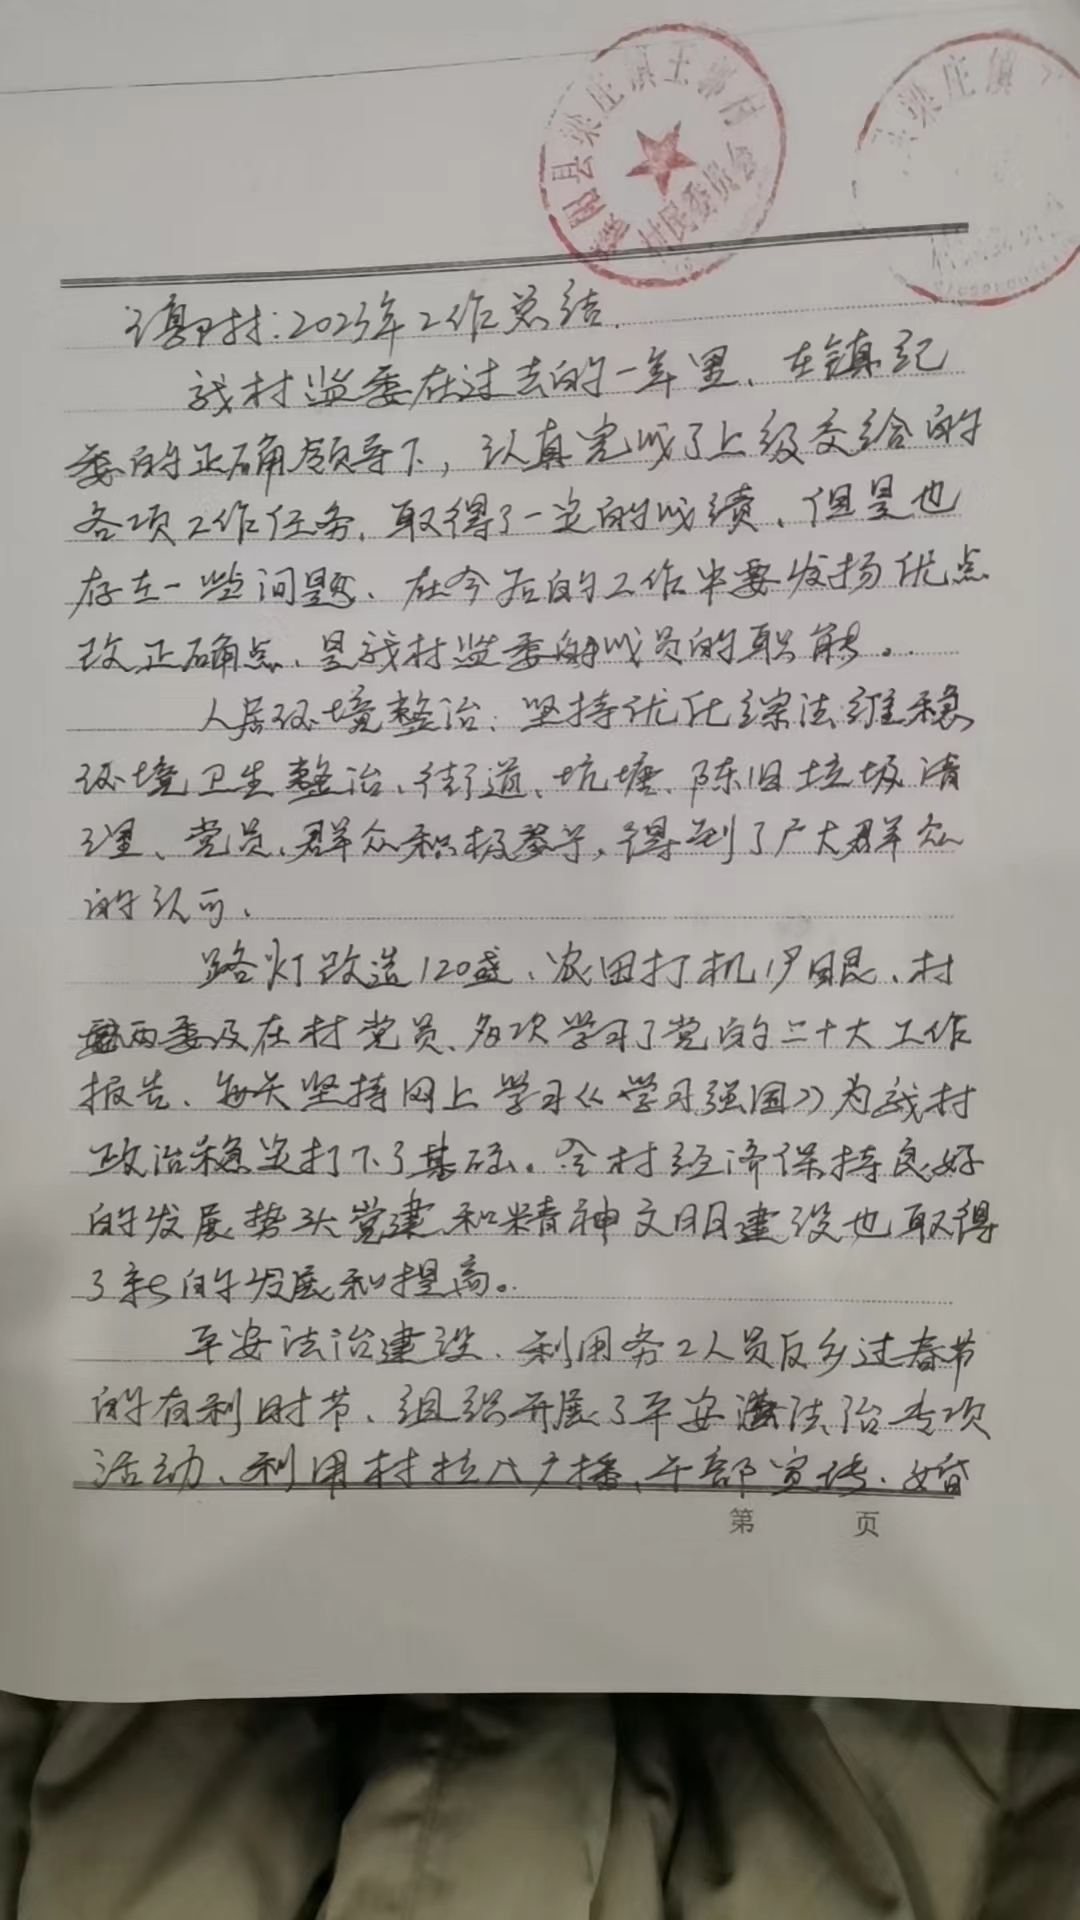 县梁庄镇王郭村
村民委员会
梁庄镇
郭村:2023年工作总结.
我村监委在过去的一年里、在镇纪
委的正确领导下,认真完成了上级交给的
各项工作任务,取得了一定的成绩、但是也
存在一些问题、在今后的工作中要发扬优点
改正确点、是我村监委的成员的职能。
人居环境整治:坚持优化综法维稳
环境卫生整治、街道、坑塘、陈旧垃圾清
理、党员、群众积极参与,得到了广大群众
的认可、
路灯改造120盏、农田打机井眼、村
两委及在村党员、多次学习了党的二十大工作
报告、每天坚持网上学习《学习强国》为我村
政治稳定打下了基础。全村经济保持良好
的发展势头党建和精神文明建设也取得
了新的发展和提高。
平安法治建设、利用务工人员反乡过春节
的有利时节、组织开展了平安法治专项
活动、利用村拉八广播、干部宣传、婚
第 页